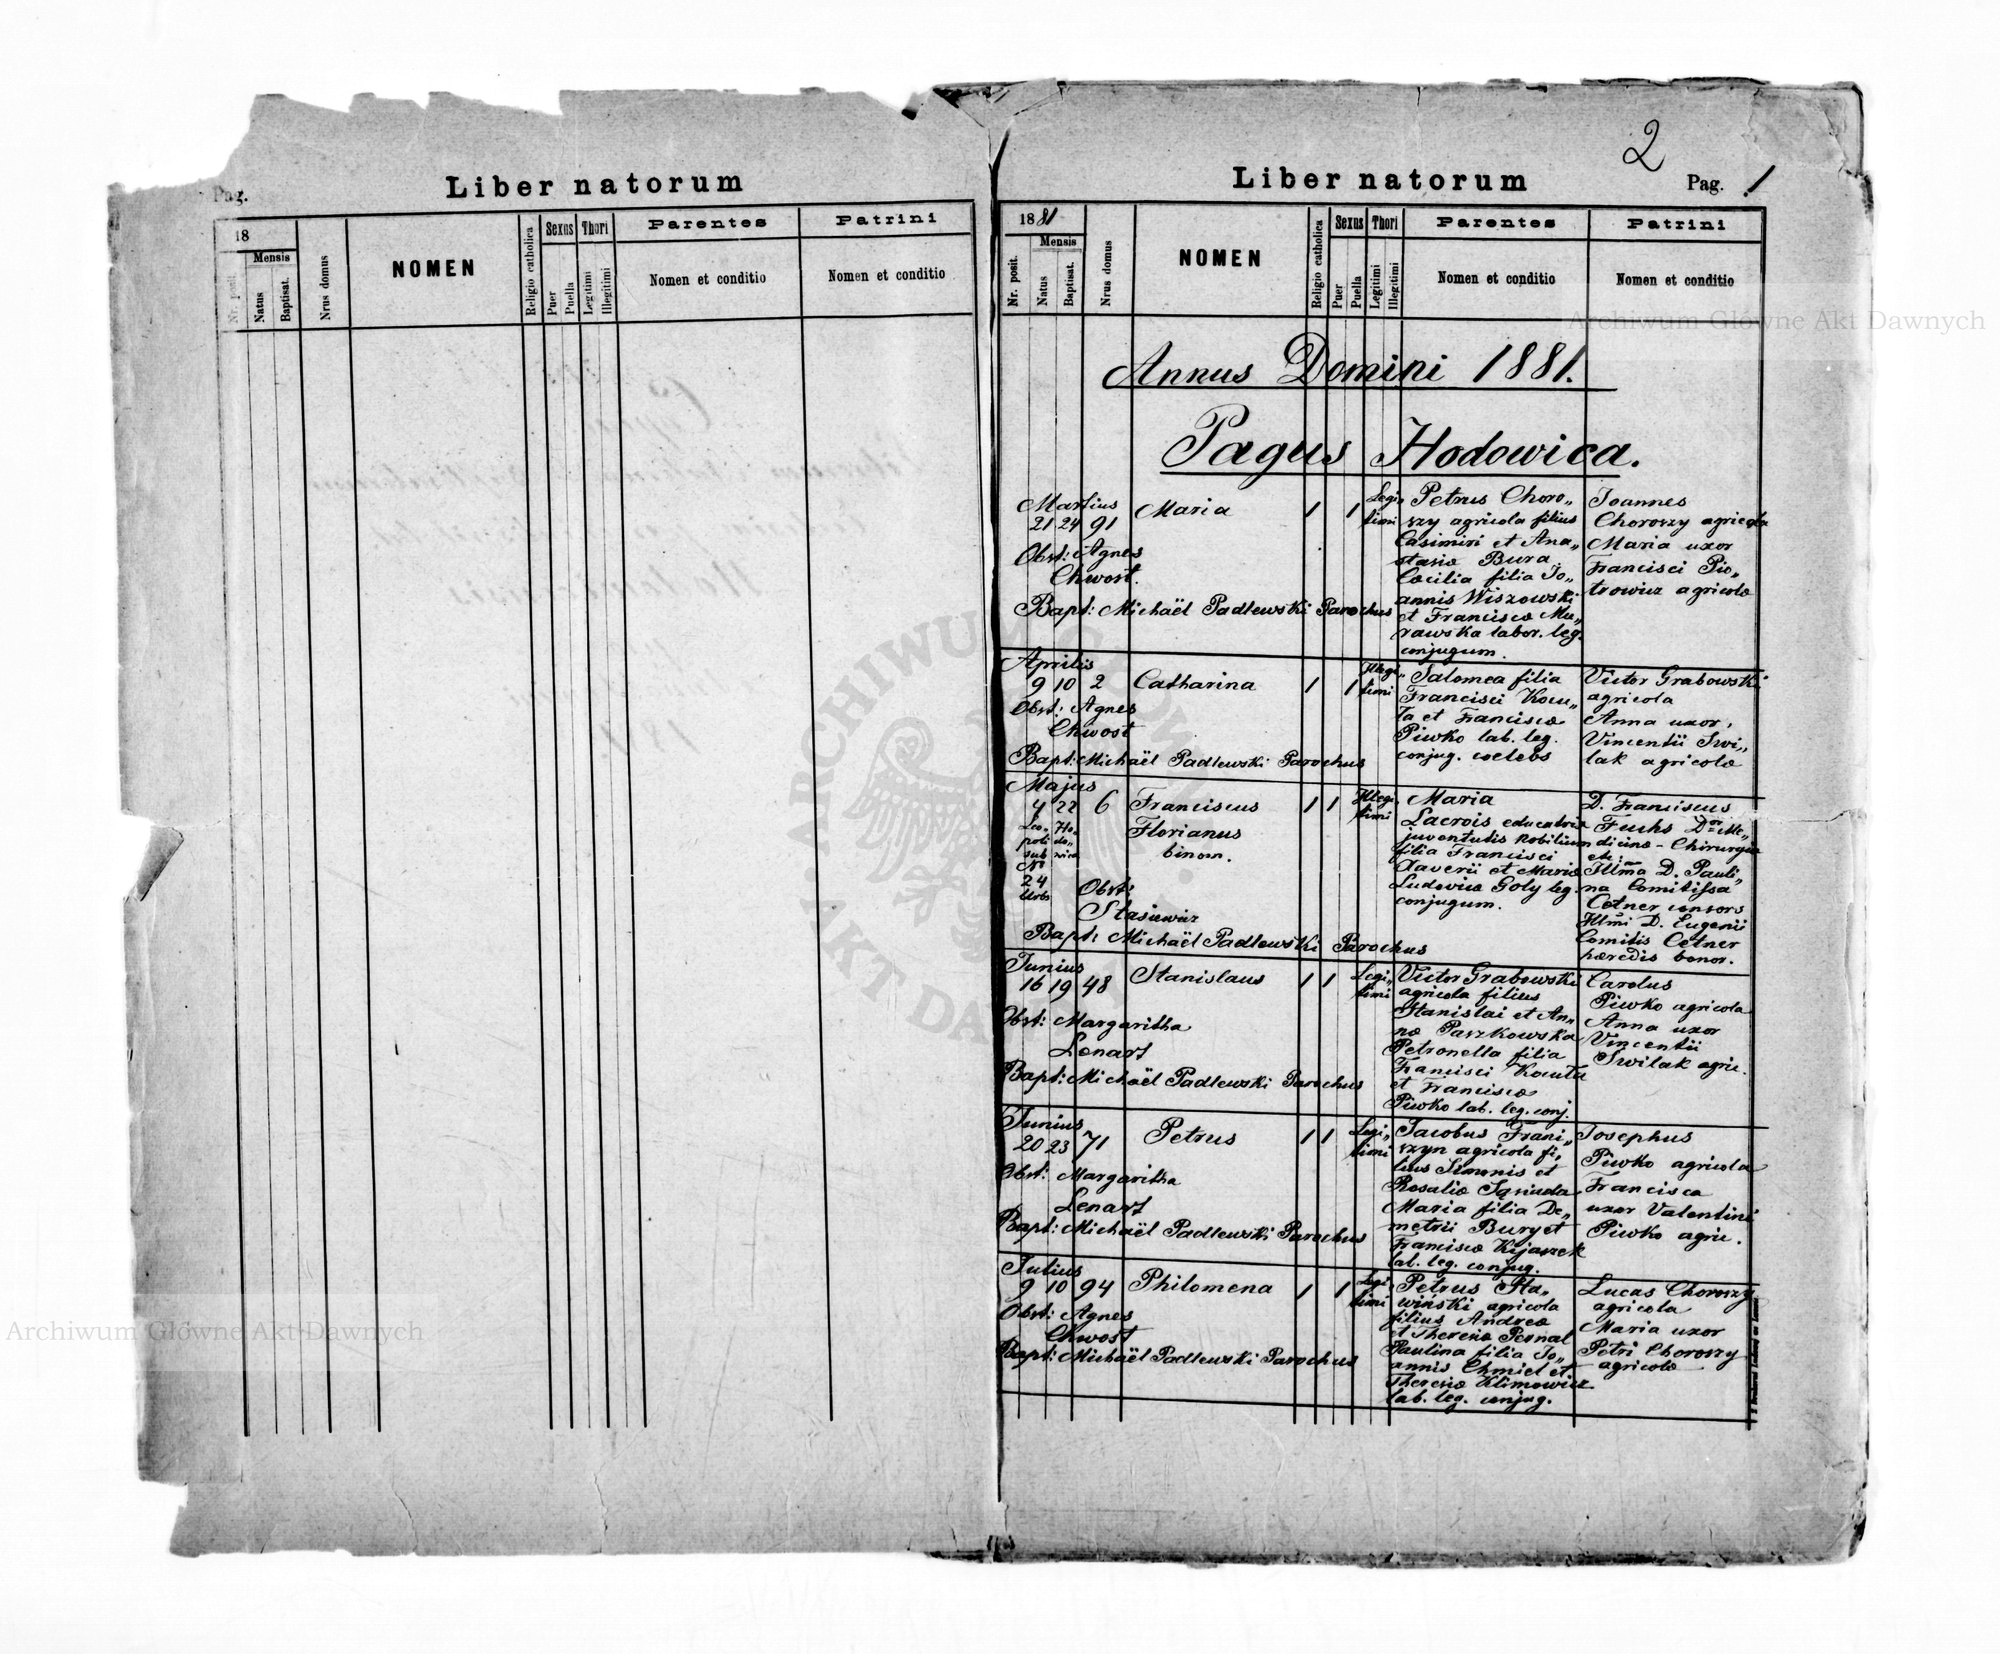 Pag.
Liber natorum
18
Mensis
Nr. posit.
Natus
Baptisat.
Nrus domus
NOMEN
Religio catholica
Sexus
Puer
Puella
Thori
Legitimi
Illegitimi
Parentes
Nomen et conditio
Patrini
Nomen et conditio
2
Liber natorum
Pag. 1
1881
Mensis
Nr. posit.
Natus
Baptisat.
Nrus domus
NOMEN
Religio catholica
Sexus
Puer
Puella
Thori
Legitimi
Illegitimi
Parentes
Nomen et conditio
Patrini
Nomen et conditio
Annus Domini 1881.
Pagus Hodowica.
Martius
21 24 91
Maria
1 1
Legi„
timi
Obst: Agnes
Chwost.
Bapt: Michaël Padlewski Parochus
Petrus Choro„
szy agricola filius
Casimiri et Ana„
stasiæ Bura
Cæcilia filia Jo„
annis Wiszowski
et Franciscæ Mu„
rawska labor. leg.
conjugum.
Joannes
Choroszy agricola
Maria uxor
Francisci Pio„
trowicz agricolæ
Aprilis
9 10 2
Catharina
1 1
Illegi„
timi
Obst: Agnes
Chwost
Bapt: Michaël Padlewski Parochus
Salomea filia
Francisci Kocu„
ła et Franciscæ
Piwko lab. leg.
conjug. coelebs
Victor Grabowski
agricola
Anna uxor
Vincentii Swi„
lak agricolæ
Majus
4 22 6
Leo„
poli
sub
No
24
Urbs
Ho„
do„
wica
Franciscus
Florianus
binom.
1 1
Illegi„
timi
Obst:
Stasiewicz
Bapt: Michaël Padlewski Parochus
Maria
Lacrois educatrix
juventutis nobilium
filia Francisci
Xaverii et Mariæ
Ludovicæ Goly leg.
conjugum.
D. Franciscus
Fuchs Dor Me„
dicinæ - Chirurgiæ
etc:
Illma D. Pauli„
na Comitissa
Cetner consors
Illmi D. Eugenii
Comitis Cetner
hæredis bonor.
Junius
16 19 48
Stanislaus
1 1
Legi„
timi
Obst: Margaritha
Lenart
Bapt: Michaël Padlewski Parochus
Victor Grabowski
agricola filius
Stanislai et An„
næ Paszkowska
Petronella filia
Francisci Kocuła
et Franciscæ
Piwko lab. leg. conj.
Carolus
Piwko agricola
Anna uxor
Vincentii
Swilak agric.
Junius
20 23 71
Petrus
1 1
Legi„
timi
Obst: Margaritha
Lenart
Bapt: Michaël Padlewski Parochus
Jacobus Frani„
szyn agricola fi„
lius Simonis et
Rosaliæ
Maria filia De„
metrii Bury et
Franciscæ Kijaszek
lab. leg. conjug.
Josephus
Piwko agricola
Francisca
uxor Valentini
Piwko agric.
Julius
9 10 94
Philomena
1 1
Legi„
timi
Obst: Agnes
Chwost
Bapt: Michaël Padlewski Parochus
Petrus Sta„
wiński agricola
filius Andreæ
et Theresiæ Pernal
Paulina filia Jo„
annis Chmiel et
Theresiæ Klimowicz
lab. leg. conjug.
Lucas Choroszy
agricola
Maria uxor
Petri Choroszy
agricolæ
Archiwum Główne Akt Dawnych
Archiwum Główne Akt Dawnych